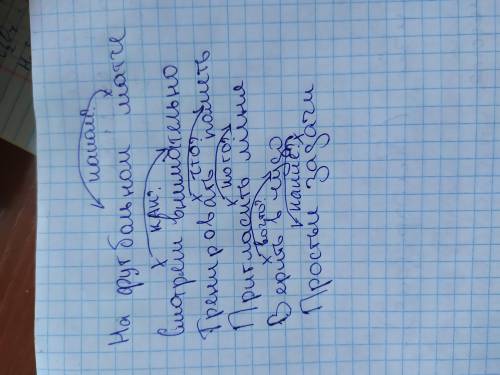 каком?
На футбольном матче
х как?
Смотрел внимательно
х что?
Тренировать память
х кого?
Пригласить меня
х во что?
Верить в чудо
какие? х
Простые задачи